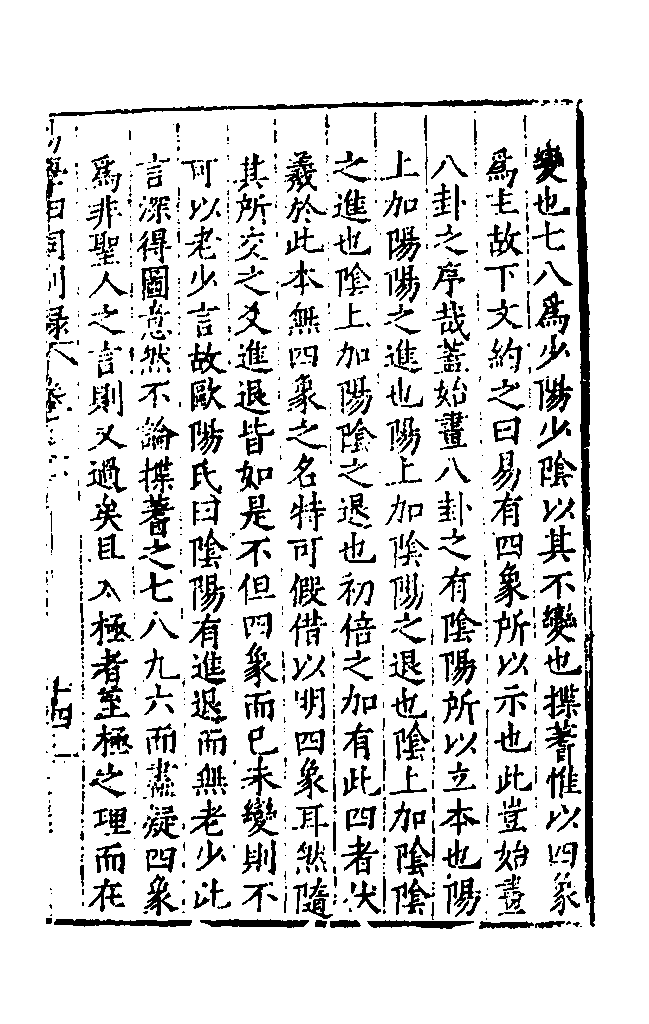 變也七八為少陽少陰以其不變也揲蓍惟以四象
為主故下文約之曰易有四象所以示也此豈始畫
八卦之序哉蓋始畫八卦之有陰陽所以立本也陽
上加陽陽之進也陽上加陰陽之退也陰上加陰陰
之進也陰上加陽陰之退也初倍之加有此四者伏
羲於此本無四象之名特可假借以明四象耳然隨
其所交之爻進退皆如是不但四象而已未變則不
可以老少言故歐陽氏曰陰陽有進退而無老少此
言深得圖意然不論揲蓍之七八九六而盡疑四象
為非聖人之言則又過矣且太極者至極之理而在
十四